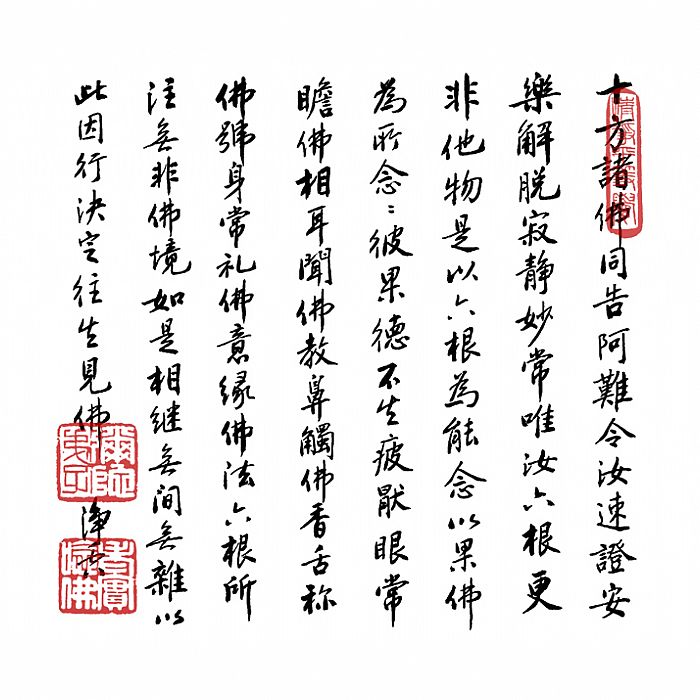 十方諸佛同告阿難令汝速證安
樂解脫寂靜妙常唯汝六根更
非他物是以六根為能念以果佛
為所念〻彼果德不生疲厭眼常
瞻佛相耳聞佛教鼻觸佛香舌称
佛號身常礼佛意緣佛法六根所
注無非佛境如是相继無间無雜以
此因行決定往生見佛
老實念佛